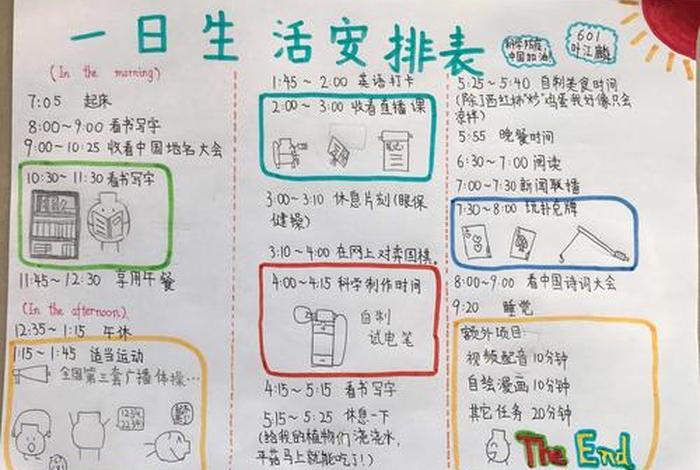 一日生活安排表
科学防疫,
中国加油!
601
叶江麟
(In the morning)
7:05 起床
8:00~9:00 看书写字
9:00~10:25 收看中国地名大会
10:30~11:30 看书写字
11:45~12:30 享用午餐
(In the afternoon)
12:35~1:15 午休
1:15~1:45 适当运动
全国第三套广播体操…
1:45~2:00 英语打卡
2:00~3:00 收看直播课
3:00~3:10 休息片刻(眼保
健操)
3:10~4:00 在网上对卖围棋。
4:00~4:15 科学制作时间
自制
试电笔
4:15~5:15 看书写字
5:15~5:25 休息一下
(给我的植物们浇浇水,
平菇马上就能吃了!)
5:25~5:40 自制美食时间
(除了西红柿炒鸡蛋我好像只会
凉拌)
5:55 晚餐时间
6:30~7:00 阅读
7:00~7:30 新闻联播
7:30~8:00 玩扑克牌
8:00~9:00 看中国诗词大会
9:20 睡觉
额外项目:
视频配音10分钟
自绘漫画10分钟
其它任务 20分钟
The End